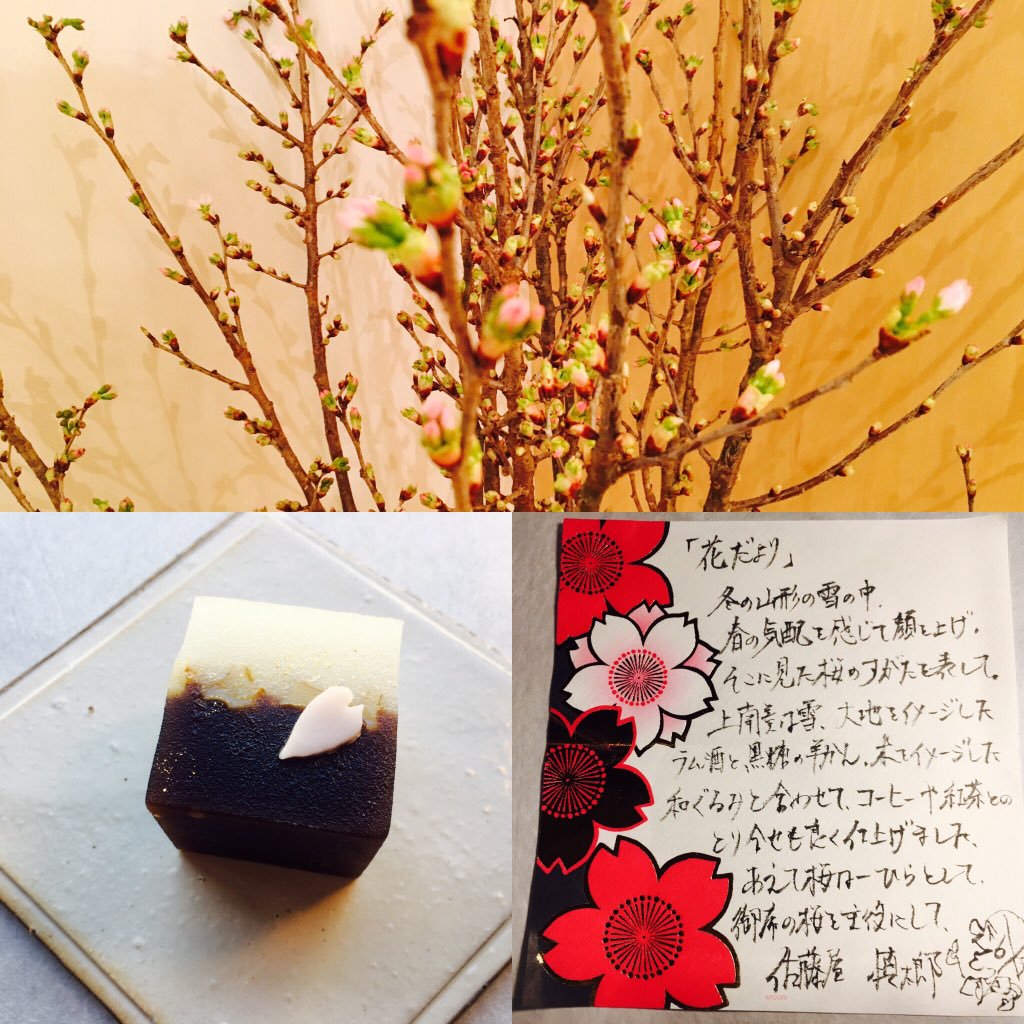 「花だより」
冬の山形の雪の中、
春の気配を感じて顔を上げ、
そこに見た桜のすがたを表して。
上南羹は雪、大地をイメージした
ラム酒と黒糖の羊かん、木をイメージした
和ぐるみと合わせて、コーヒーや紅茶との
とり合せも良く仕上げました、
あえて桜は一ひらとして、
御席の桜を主役にして、
佐藤屋 慎太郎
MIDORI